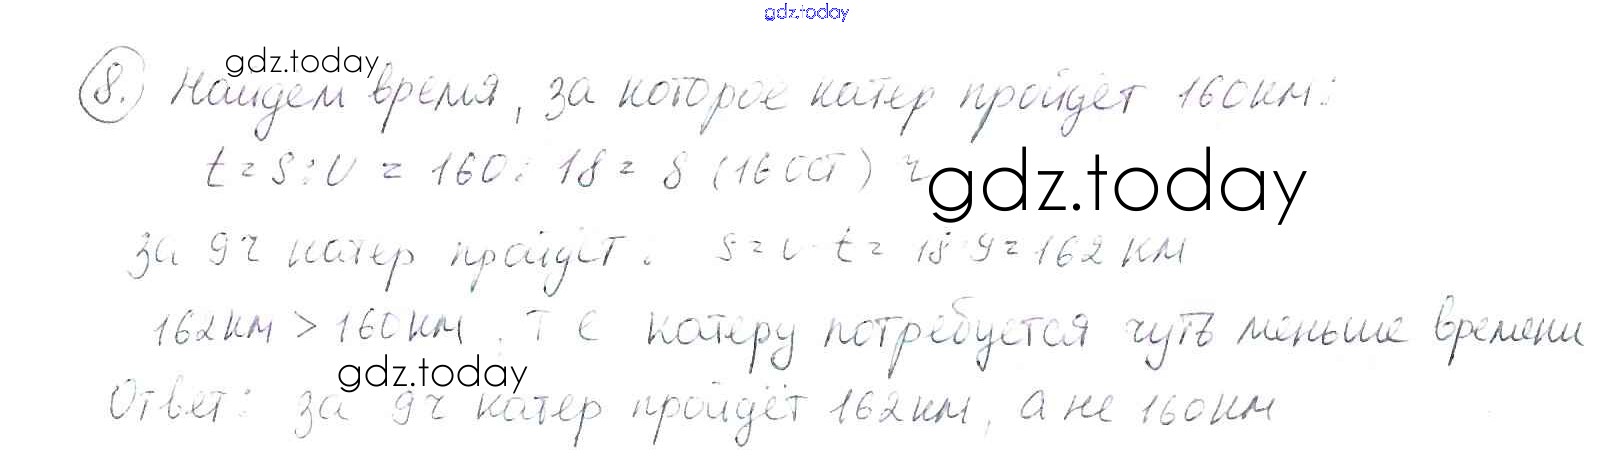 gdz.today
gdz.today
8. Найдем время, за которое катер пройдёт 160 км:
t = S : V = 160 : 18 = 8 (16 ост) ч
gdz.today
за 9ч катер пройдёт: S = V · t = 18 · 9 = 162 км
162км > 160км, т е катеру потребуется чуть меньше времени
gdz.today
Ответ: за 9ч катер пройдёт 162км, а не 160км